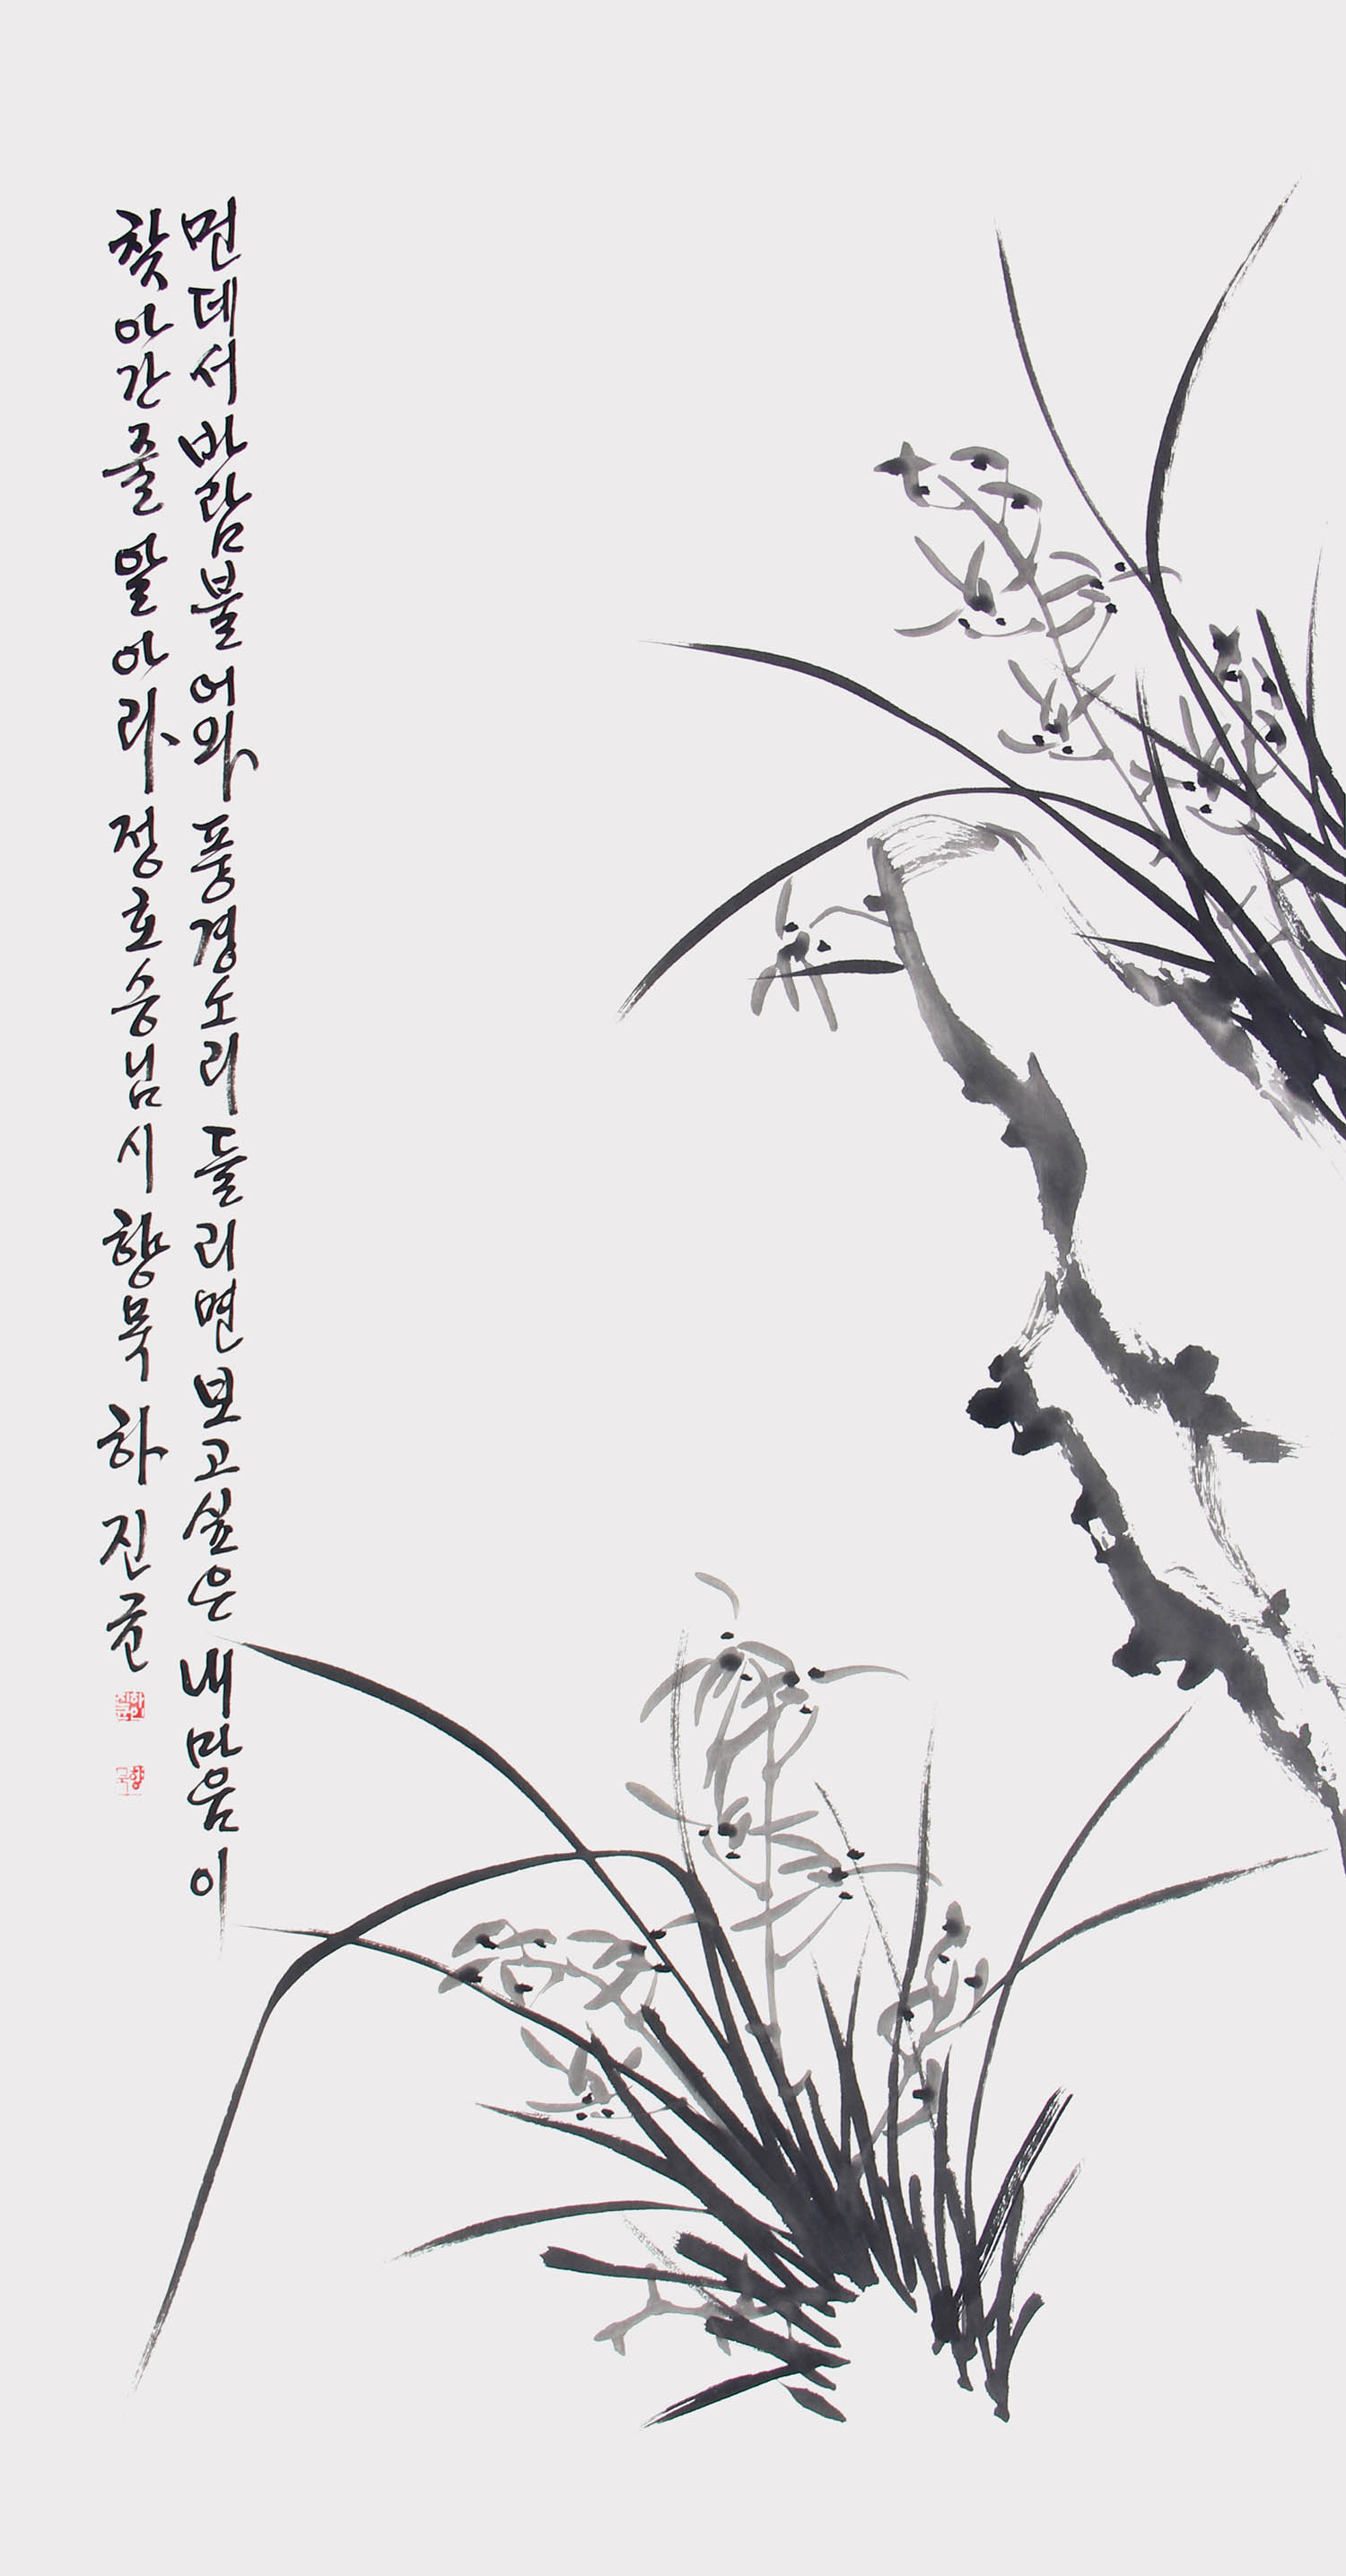 먼데서 바람불어와 풍경소리 들리면 보고싶은 내마음이
찾아간줄 알아라 정호승님시 향묵 하진균